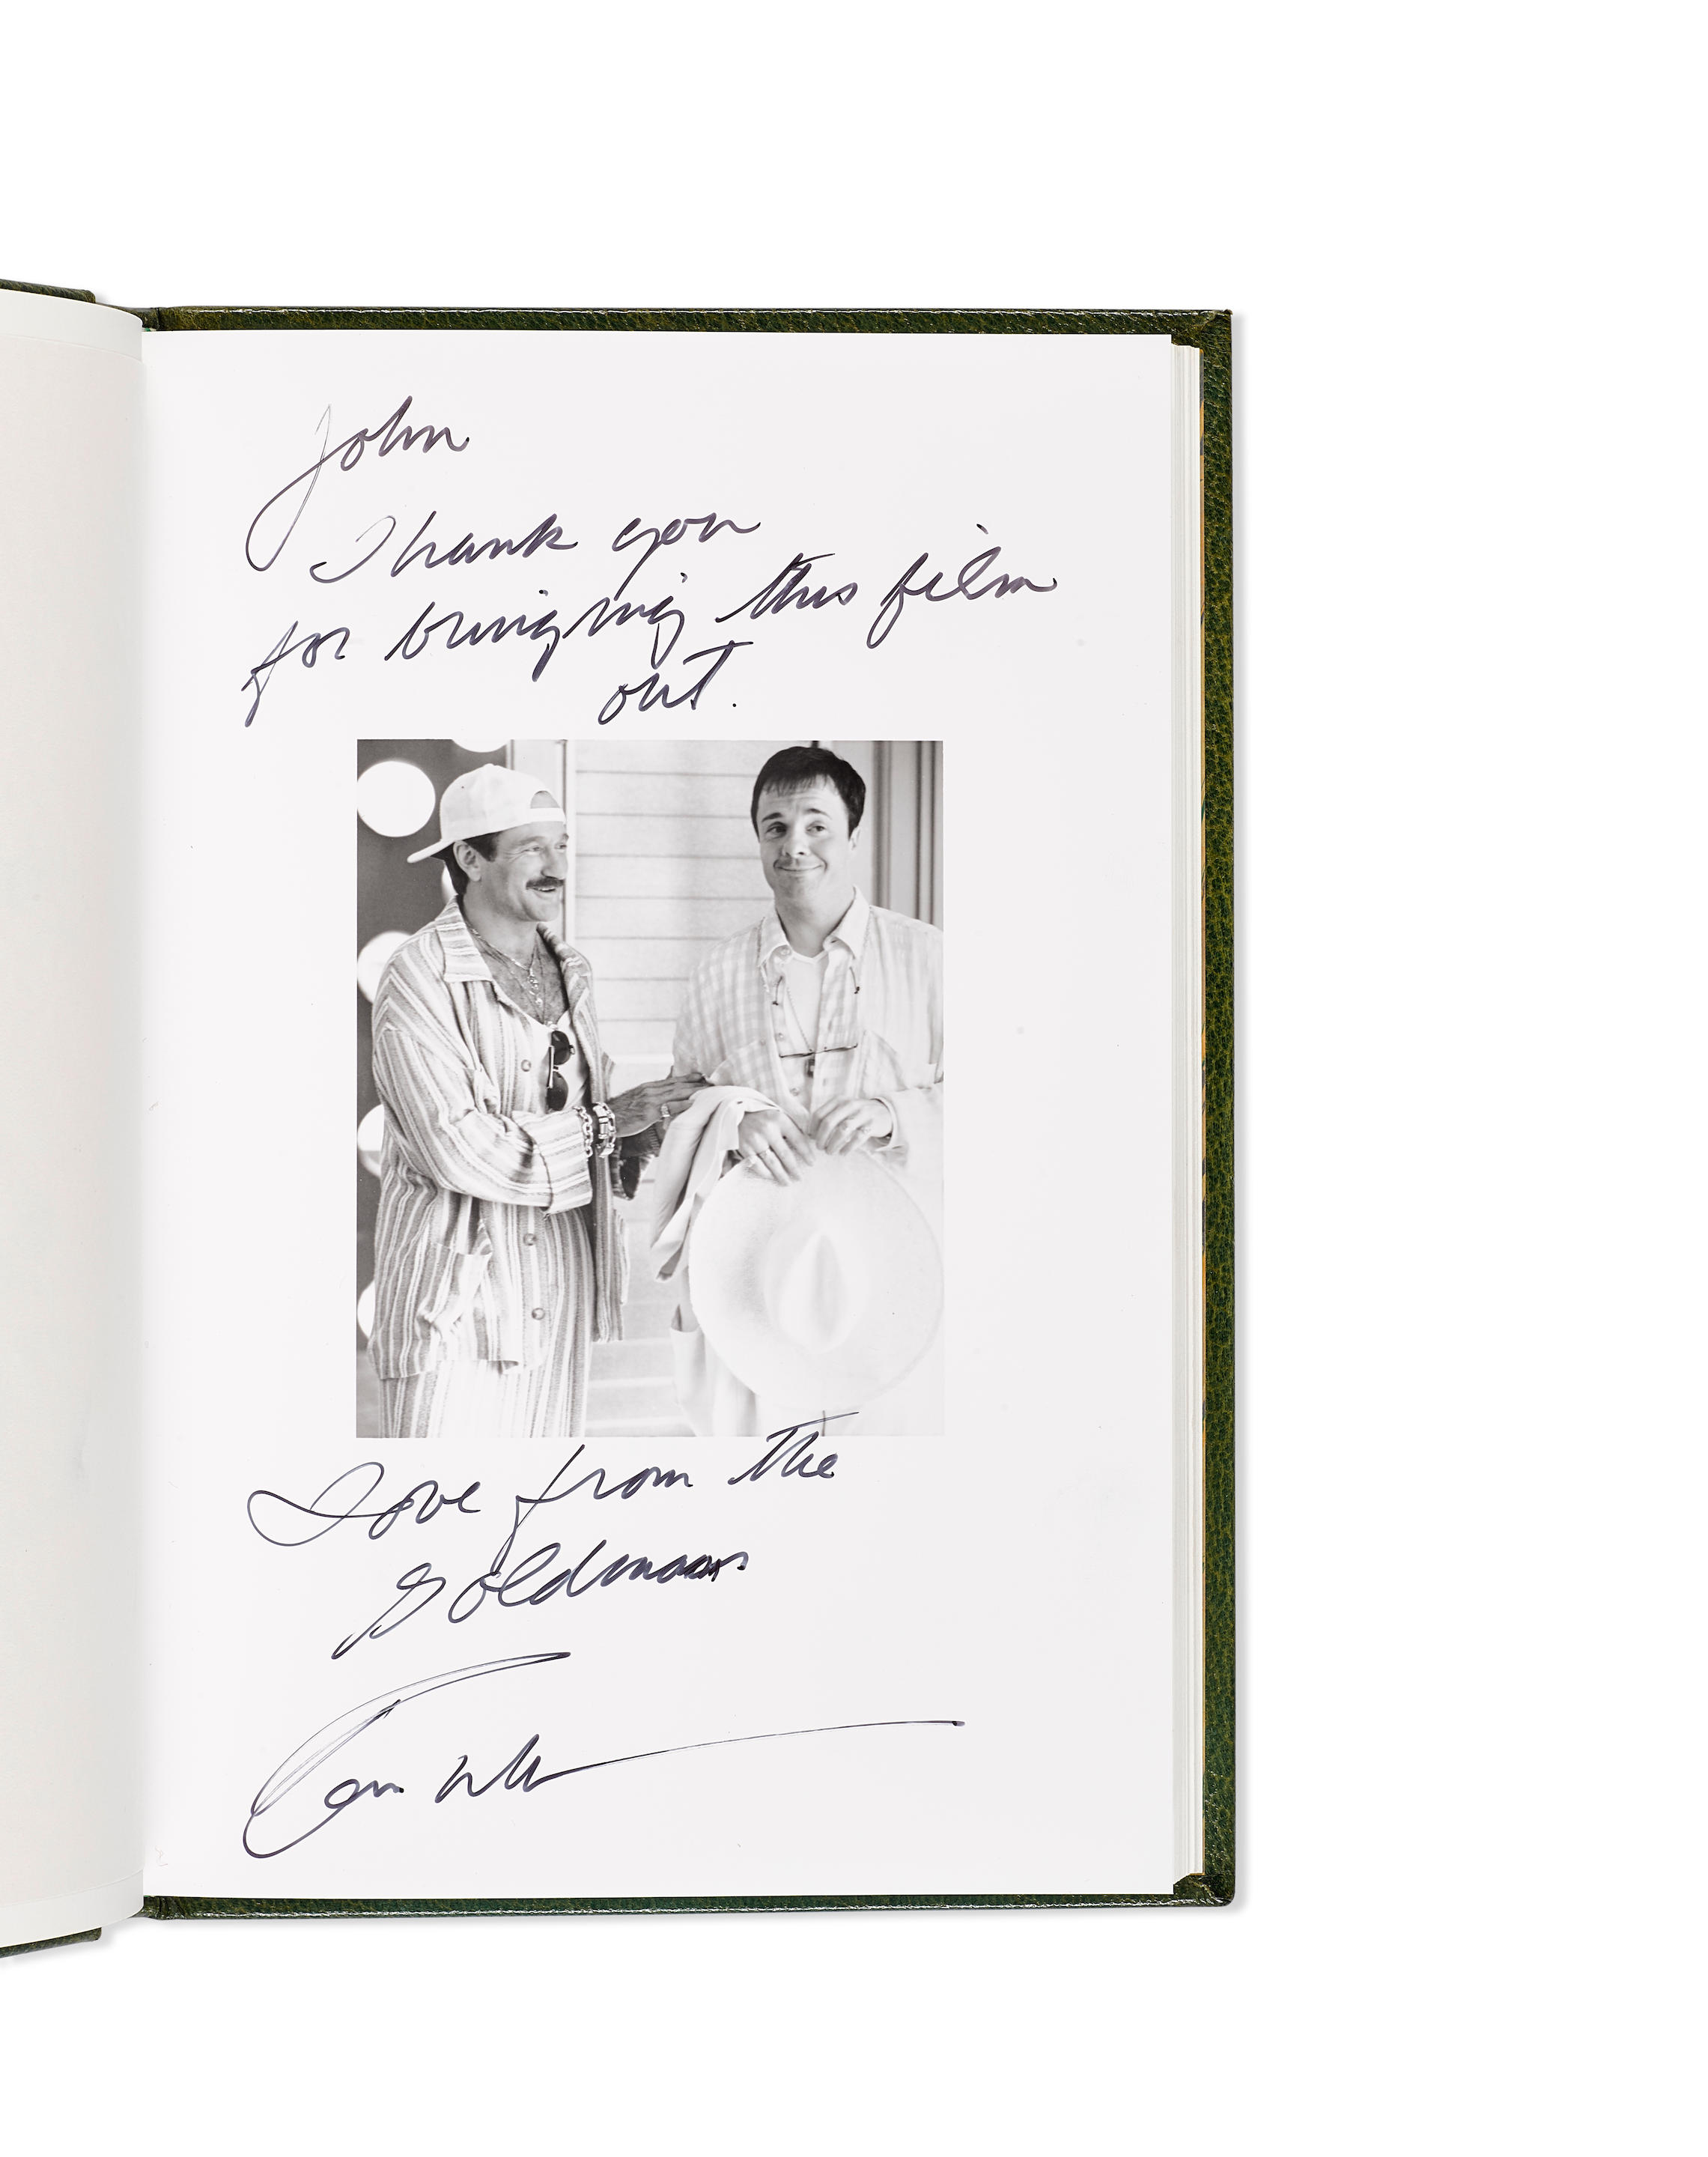 John
Thank you
for bringing this film
out.
Love from the
Goldmans